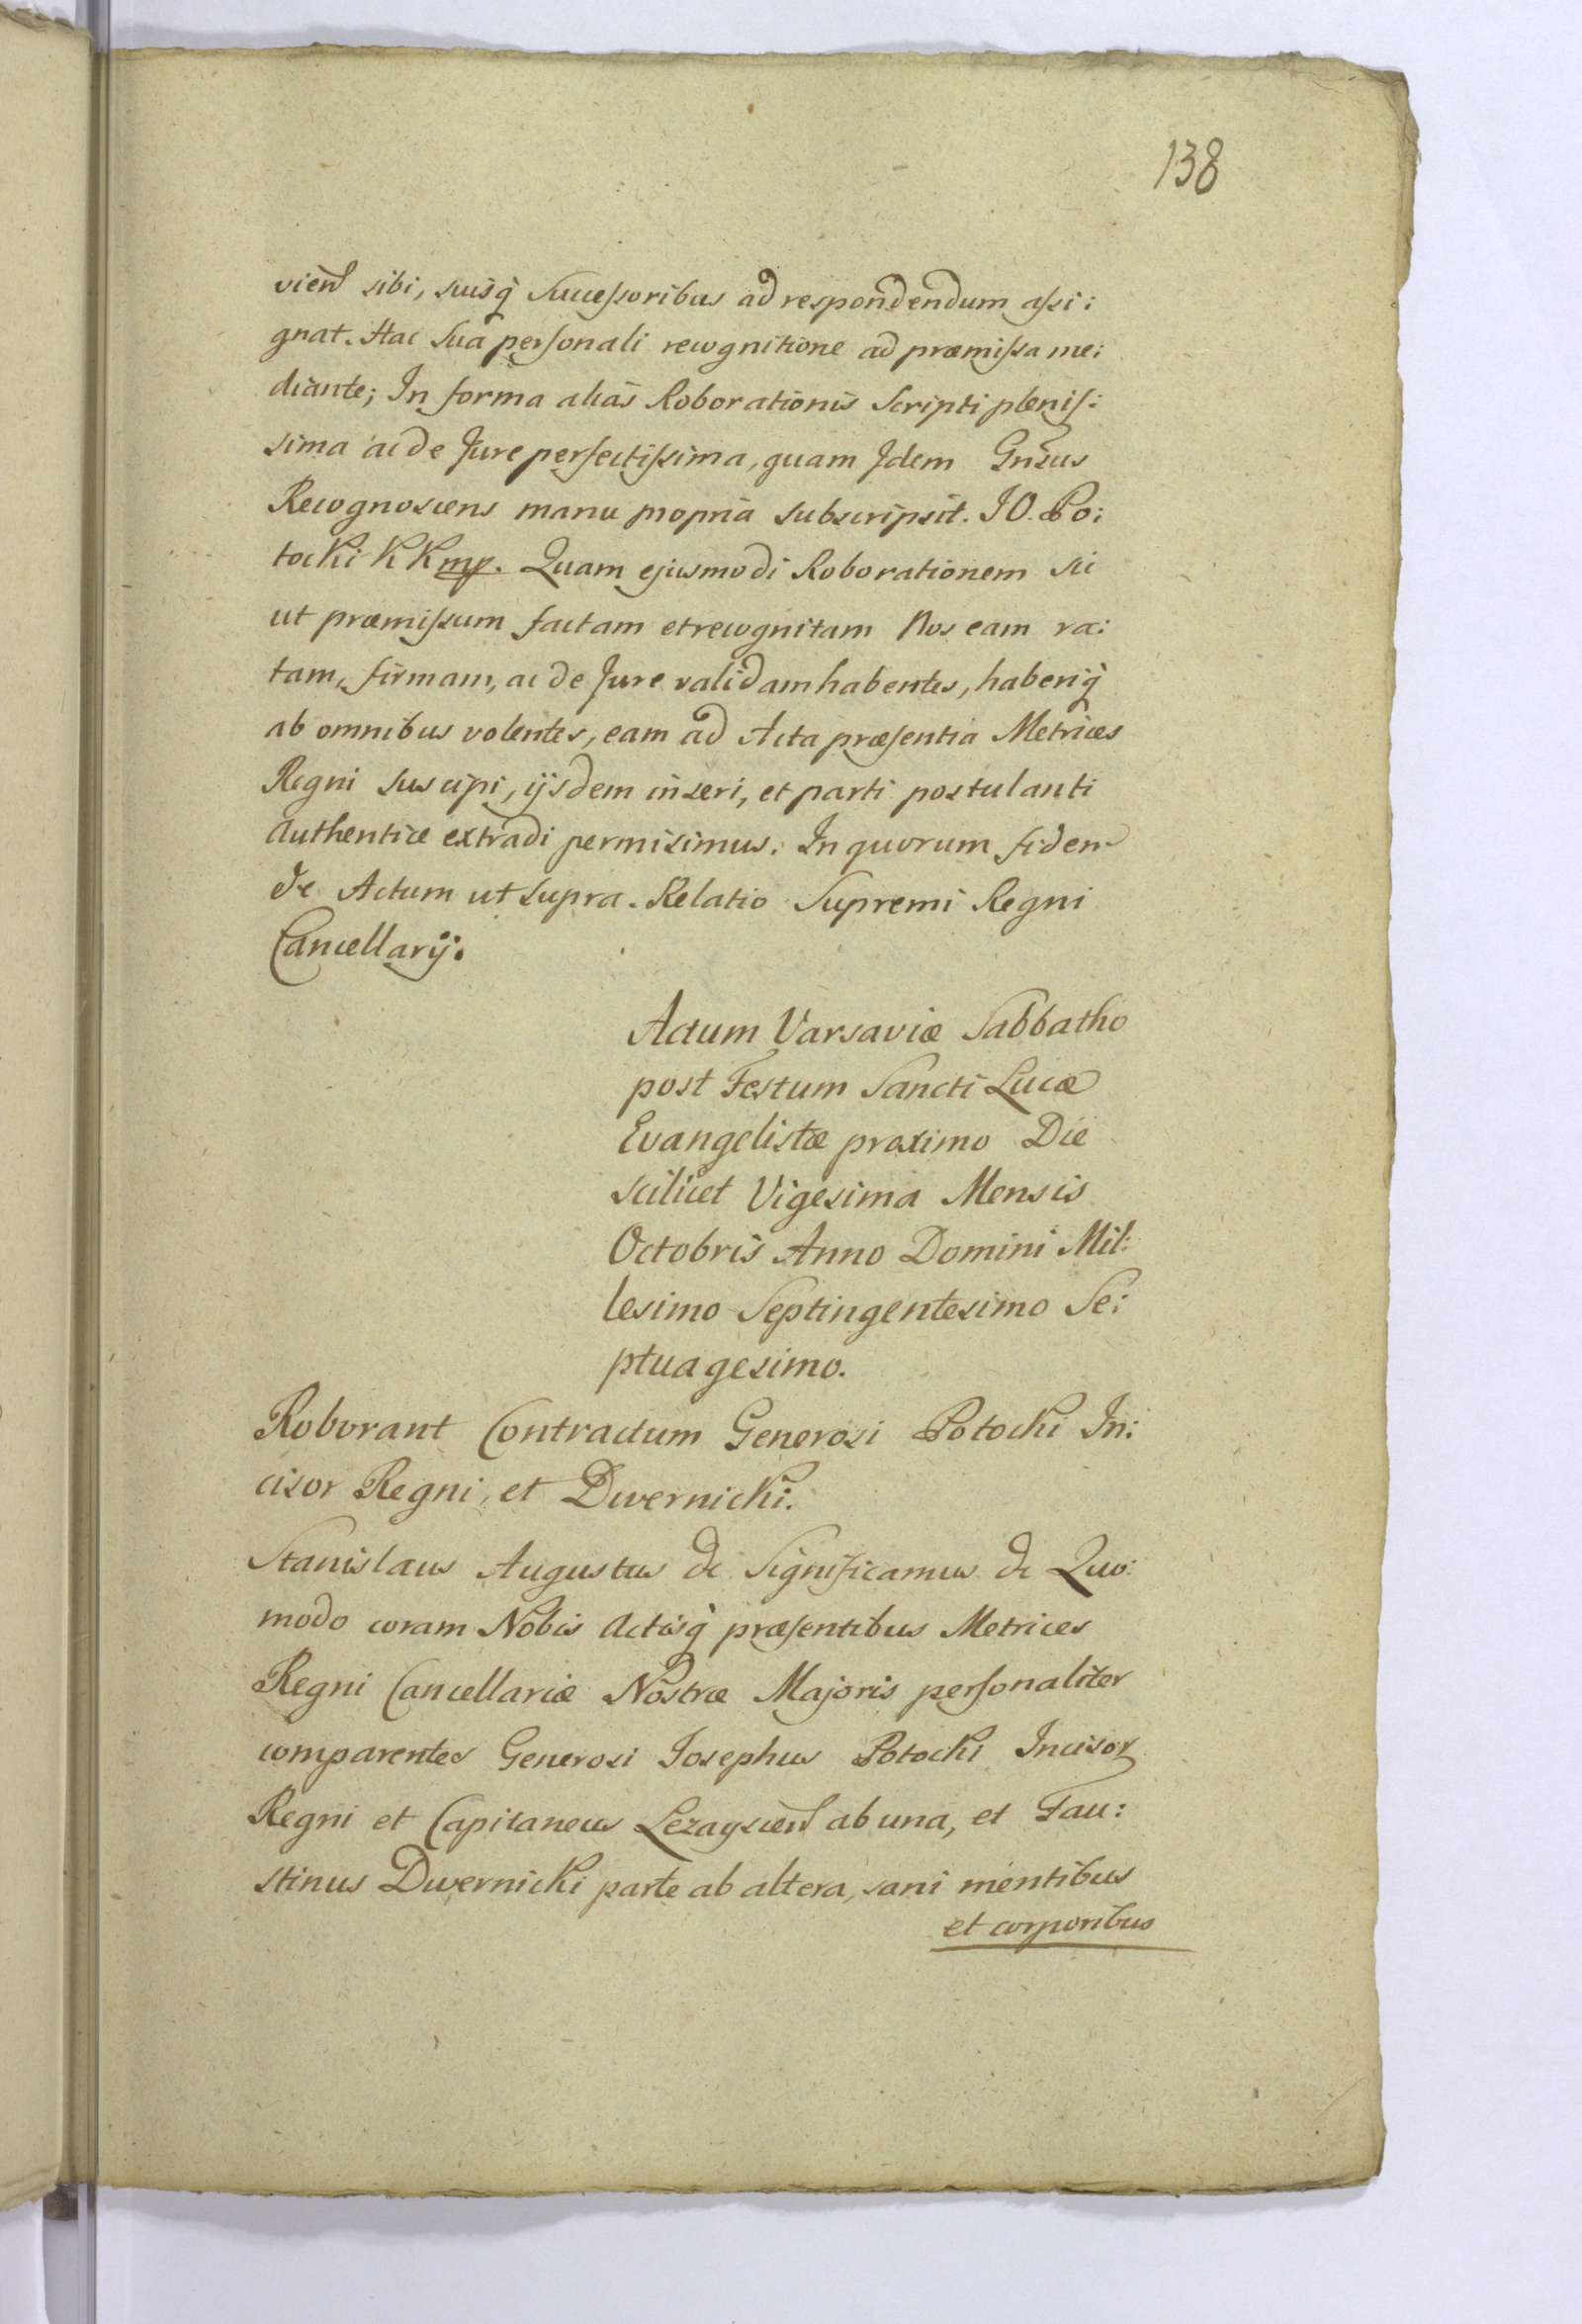 138
vien̄ sibi, suisq̀ Successoribus ad respondendum assi:
gnat. Hac Sua personali recognitione ad præmissa me:
diante; In forma aliàs Roborationis Scripti plenis:
sima ac de Jure perfectissima, quam Idem Gn̄sus
Recognoscens manu propria subscripsit. JO. Po:
tocki K K mp. Quam ejusmodi Roborationem sic
ut præmissum factam et recognitam Nos eam ra:
tam, firmam, ac de Jure validam habentes, haberiq̀
ab omnibus volentes, eam ad Acta præsentia Metrices
Regni suscipi, ijsdem inseri, et parti postulanti
authentice extradi permisimus. In quorum fidem
&c Actum ut supra. Relatio Supremi Regni
Cancellarij.
Actum Varsaviæ Sabbatho
post Festum Sancti Lucæ
Evangelistæ proximo Die
scilicet Vigesima Mensis
Octobris Anno Domini Mil:
lesimo Septingentesimo Se:
ptuagesimo.
Roborant Contractum Generosi Potocki In:
cisor Regni, et Dwernicki.
Stanislaus Augustus &c Significamus &c Quo:
modo coram Nobis Actisq̀ præsentibus Metrices
Regni Cancellariæ Nostræ Majoris personaliter
comparentes Generosi Josephus Potocki Incisor
Regni et Capitaneus Lezayscen̄ ab una, et Fau:
stinus Dwernicki parte ab altera, sani mentibus
et corporibus